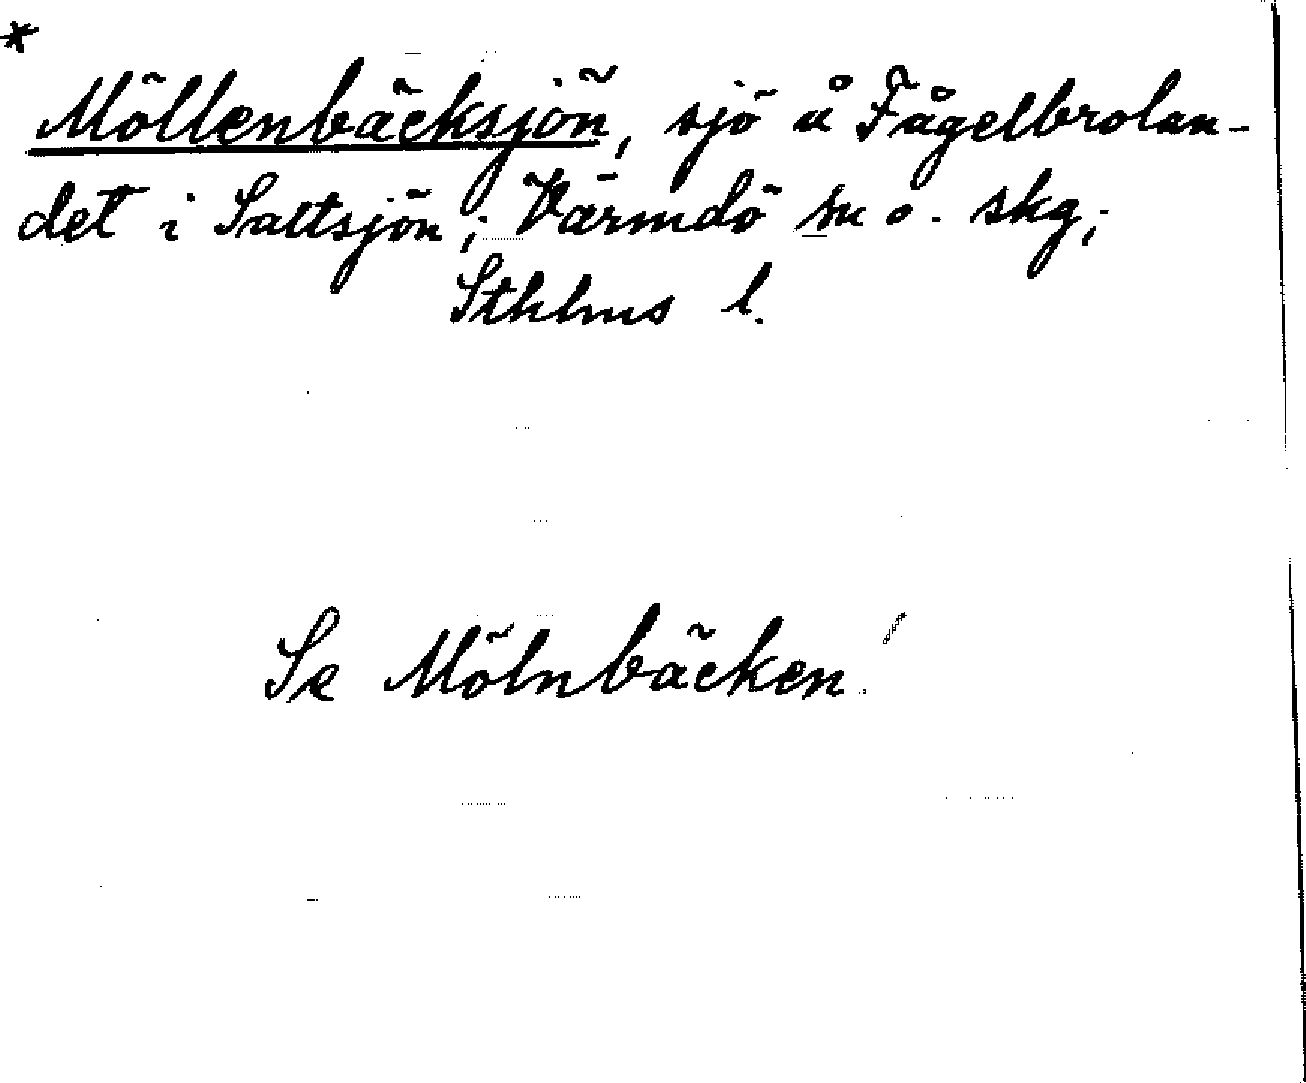 *
Möllenbäcksjön, sjö å Fågelbrolan-
det i Saltsjön; Värmdö sn o. skg;
Sthlms l.
Se Mölnbäcken!